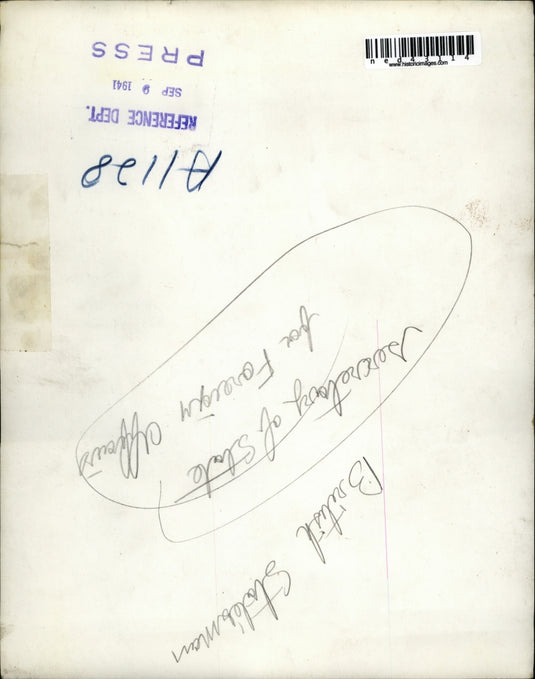 ned43114
www.historicimages.com
REFERENCE DEPT.
SEP 9 1941
PRESS
A1128
British Statesman
Secretary of State
for Foreign Affairs